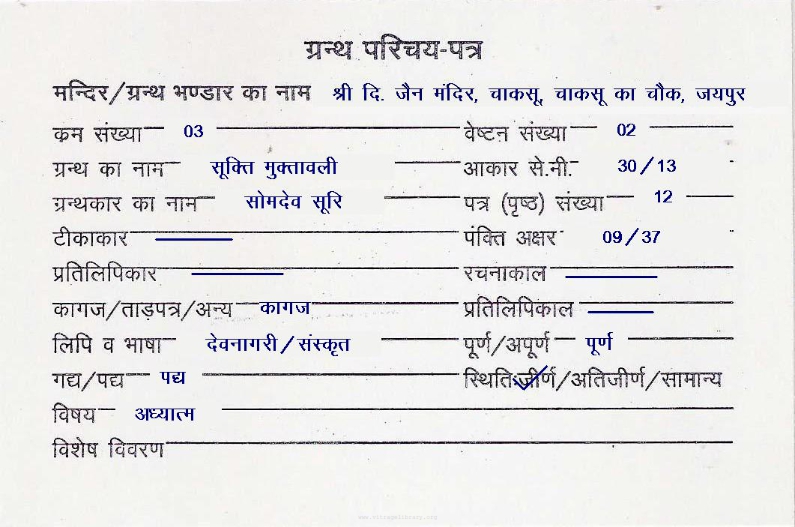 ग्रन्थ परिचय-पत्र
मन्दिर/ग्रन्थ भण्डार का नाम श्री दि. जैन मंदिर, चाकसू, चाकसू का चौक, जयपुर
कम संख्या 03 वेष्टन संख्या 02
ग्रन्थ का नाम सूक्ति मुक्तावली आकार से.मी. 30/13
ग्रन्थकार का नाम सोमदेव सूरि पत्र (पृष्ठ) संख्या 12
टीकाकार पंक्ति अक्षर 09/37
प्रतिलिपिकार रचनाकाल
कागज/ताड़पत्र/अन्य कागज प्रतिलिपिकाल
लिपि व भाषा देवनागरी/संस्कृत पूर्ण/अपूर्ण पूर्ण
गद्य/पद्य पद्य स्थितिः जीर्ण/अतिजीर्ण/सामान्य
विषय अध्यात्म
विशेष विवरण